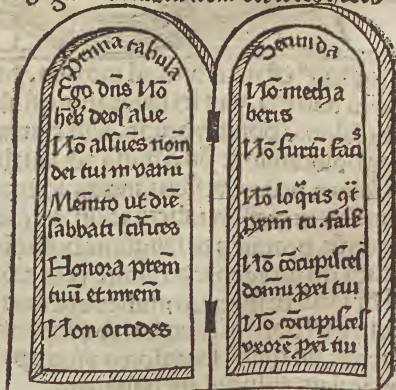 Prima tabula
Ego dn̄s Nō
heb̄ deos alie
Nō assūes nom̄
dei tui in vanū
Mem̄to ut diē
sabbati sc̄ifices
Honora pr̄em
tuū et mr̄em
Non occides
Secunda
Nō mecha
beris
Nō furtū faciˢ
Nō loq̄ris ꝯt̄
ꝓxim̄ tu. fals̄
Nō cōcupisces
domū ꝓxi tui
Nō cōcupisces
vxorē ꝓxi tui